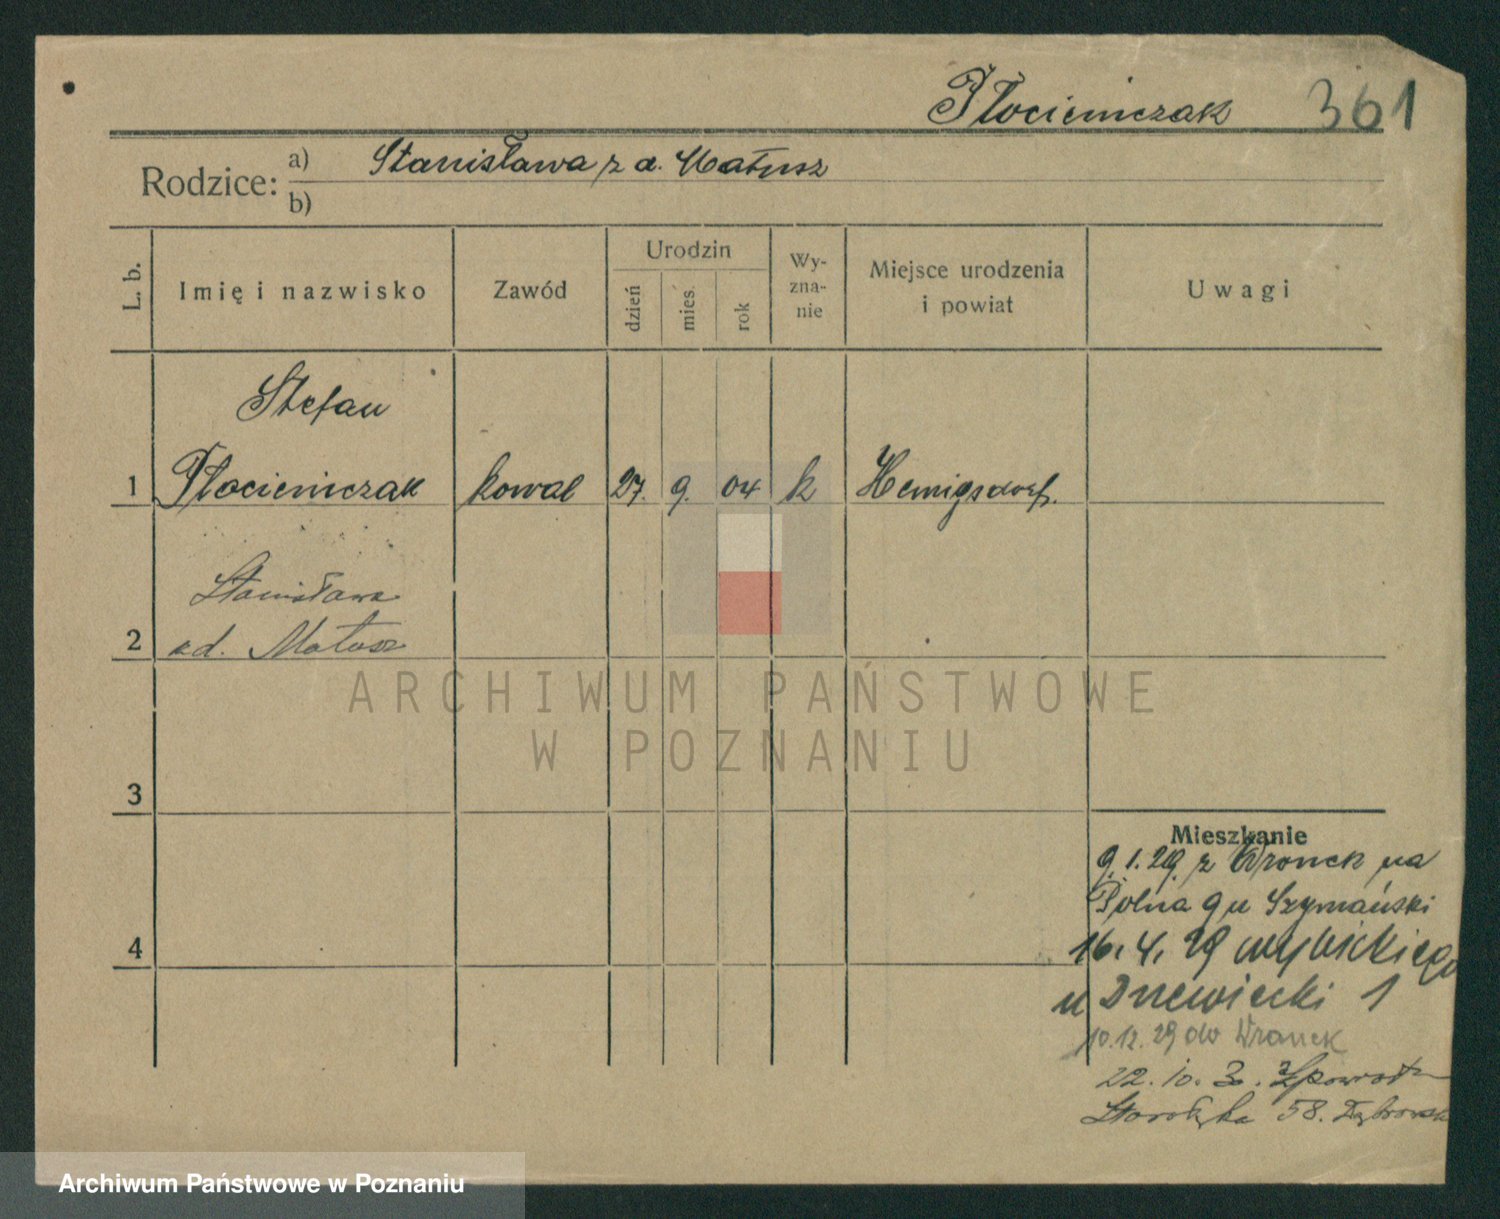 Płocieniczak 361
Rodzice: a) Stanisława z d. Matusz
b)
L. b.
Imię i nazwisko
Zawód
Urodzin
dzień
mies.
rok
Wy-
zna-
nie
Miejsce urodzenia
i powiat
Uwagi
Stefan
1 Płocieniczak kowal 27. 9. 04 k Hennigsdorf.
Stanisława
2 z d. Matusz
3
4
Mieszkanie
9.1.29. z Wronek na
Polna 9 u Szymański
16.4.29 Wybickiego
u Drzewiecki 1
10.12.29 do Wronek
22.10.30. z
58.
ARCHIWUM PAŃSTWOWE
W POZNANIU
Archiwum Państwowe w Poznaniu